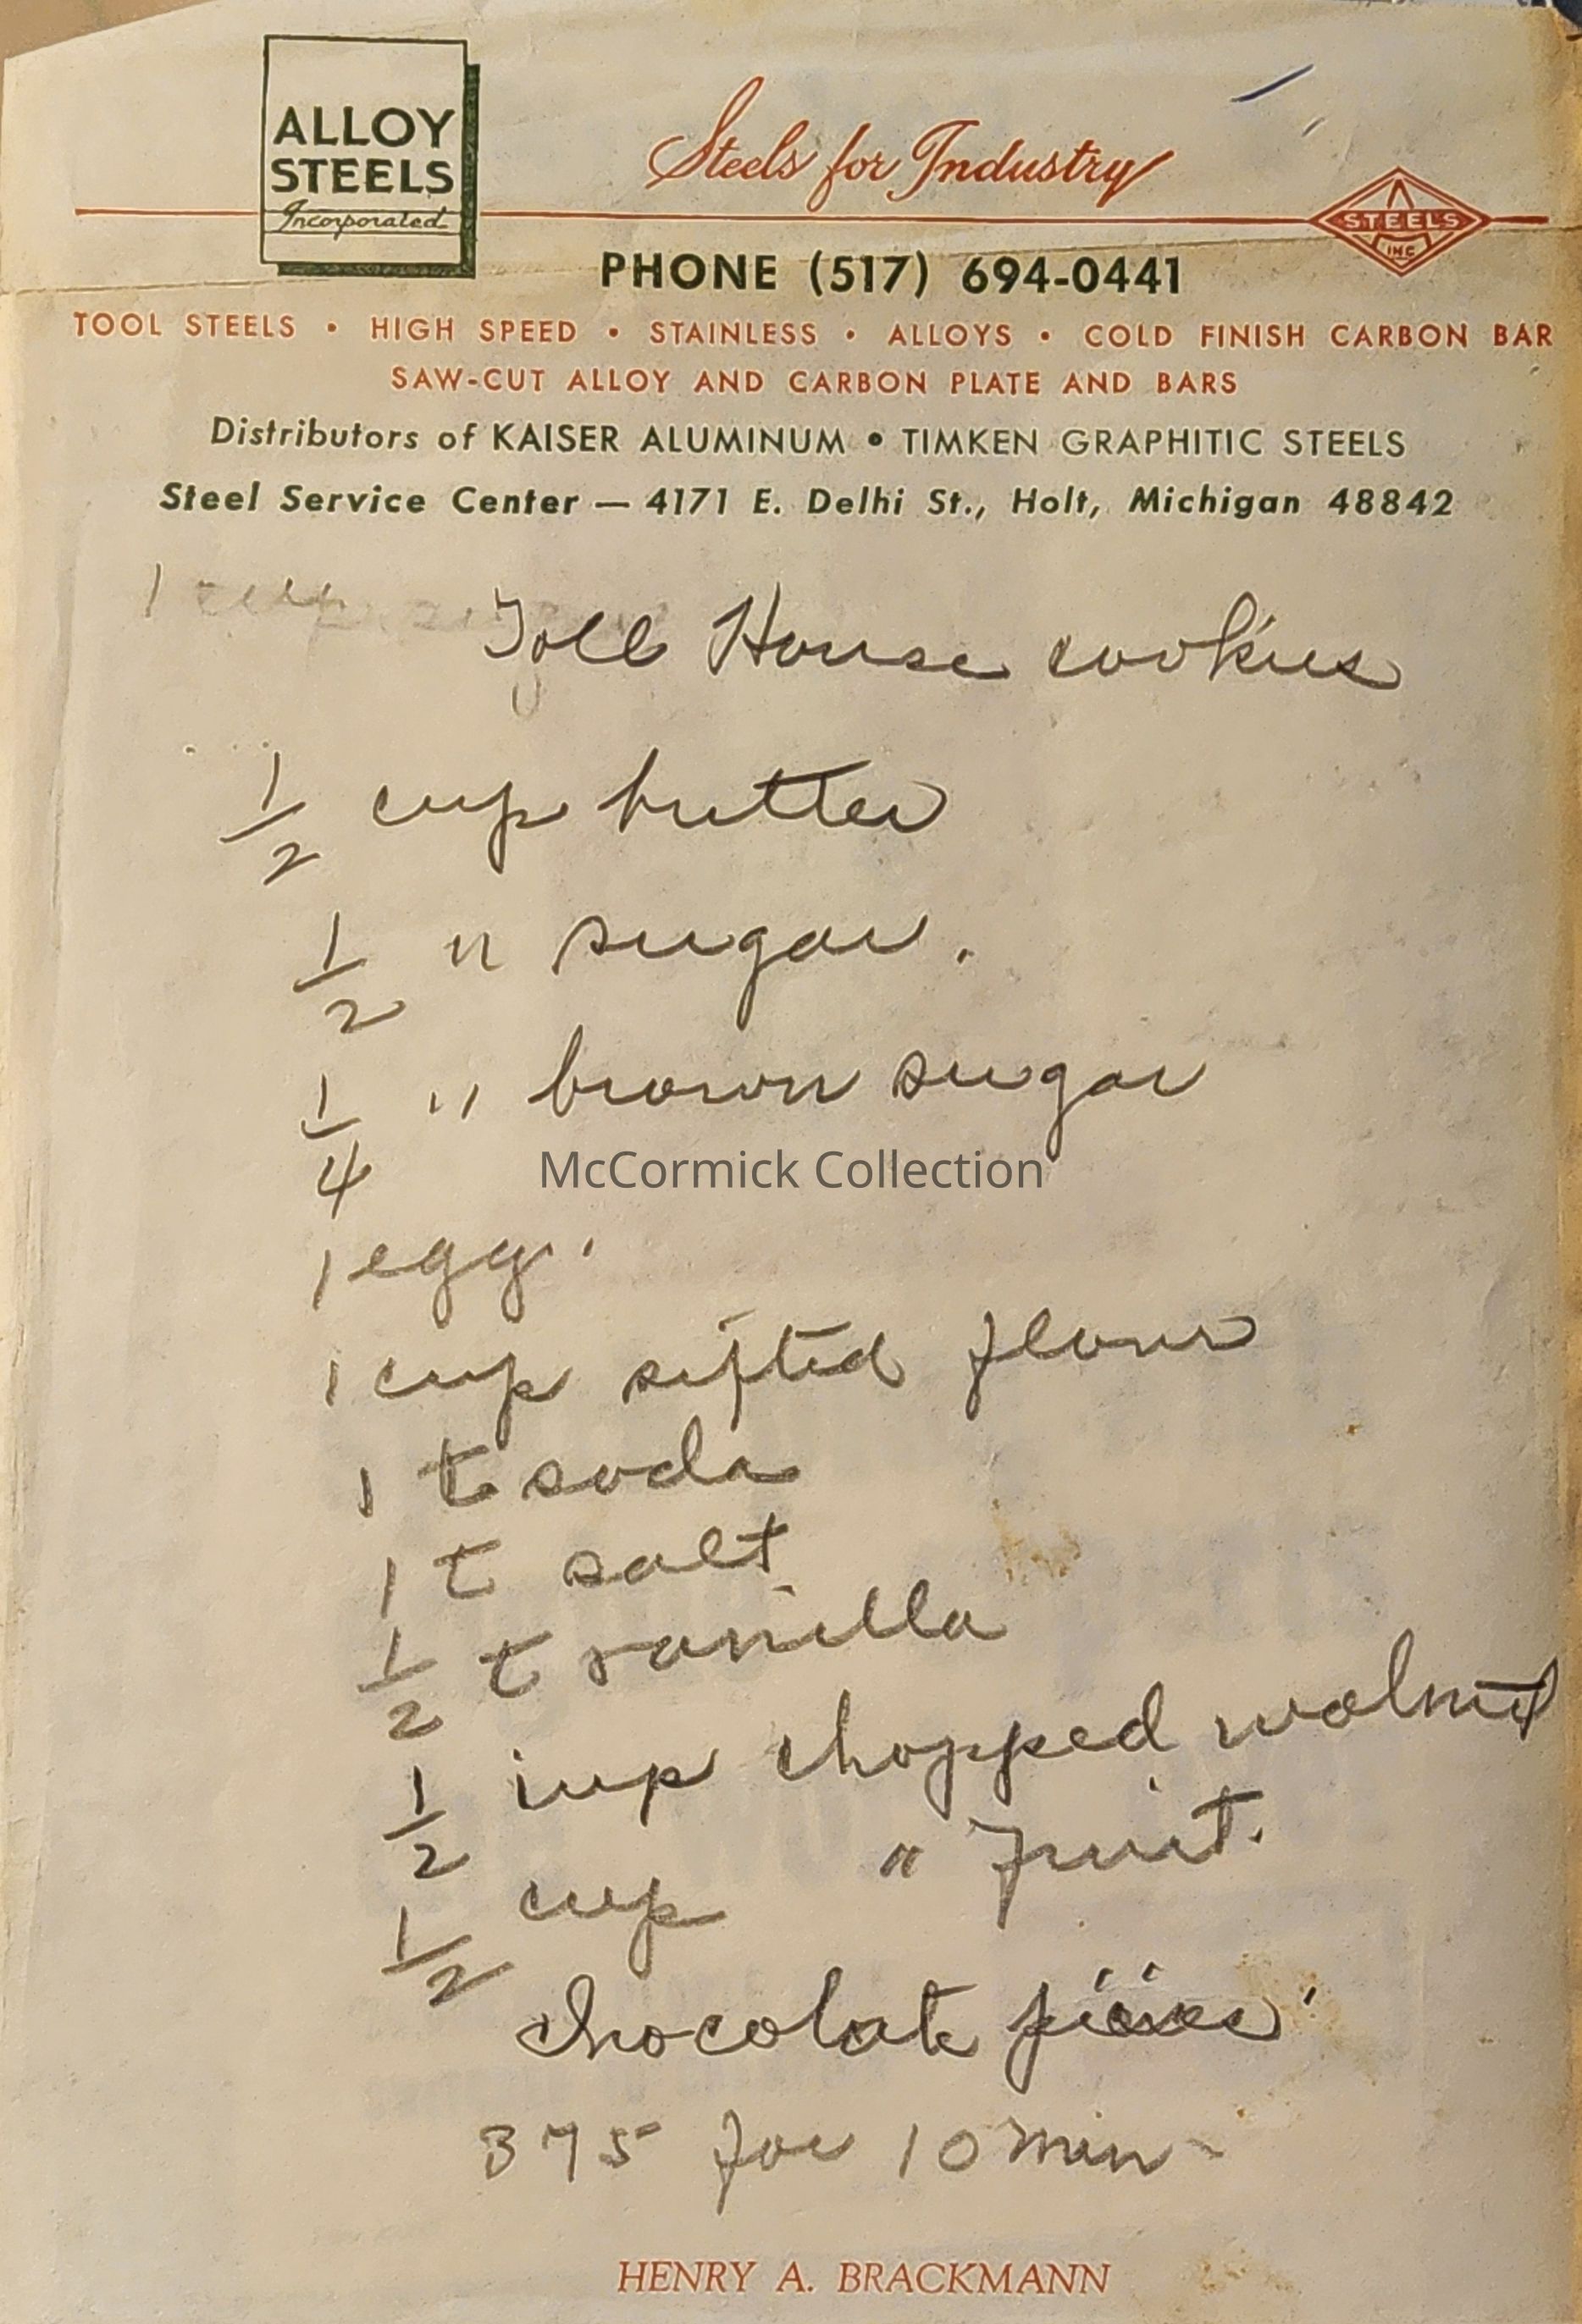 ALLOY
STEELS
Incorporated
Steels for Industry
STEELS
INC
PHONE (517) 694-0441
TOOL STEELS • HIGH SPEED • STAINLESS • ALLOYS • COLD FINISH CARBON BAR
SAW-CUT ALLOY AND CARBON PLATE AND BARS
Distributors of KAISER ALUMINUM • TIMKEN GRAPHITIC STEELS
Steel Service Center — 4171 E. Delhi St., Holt, Michigan 48842
1 cup
Toll House cookies
1/2 cup butter
1/2 " sugar.
1/4 " brown sugar
McCormick Collection
1 egg.
1 cup sifted flour
1 t soda
1 t salt
1/2 t vanilla
1/2 cup chopped walnut
1/2 cup " Fruit.
chocolate
375 for 10 min-
HENRY A. BRACKMANN